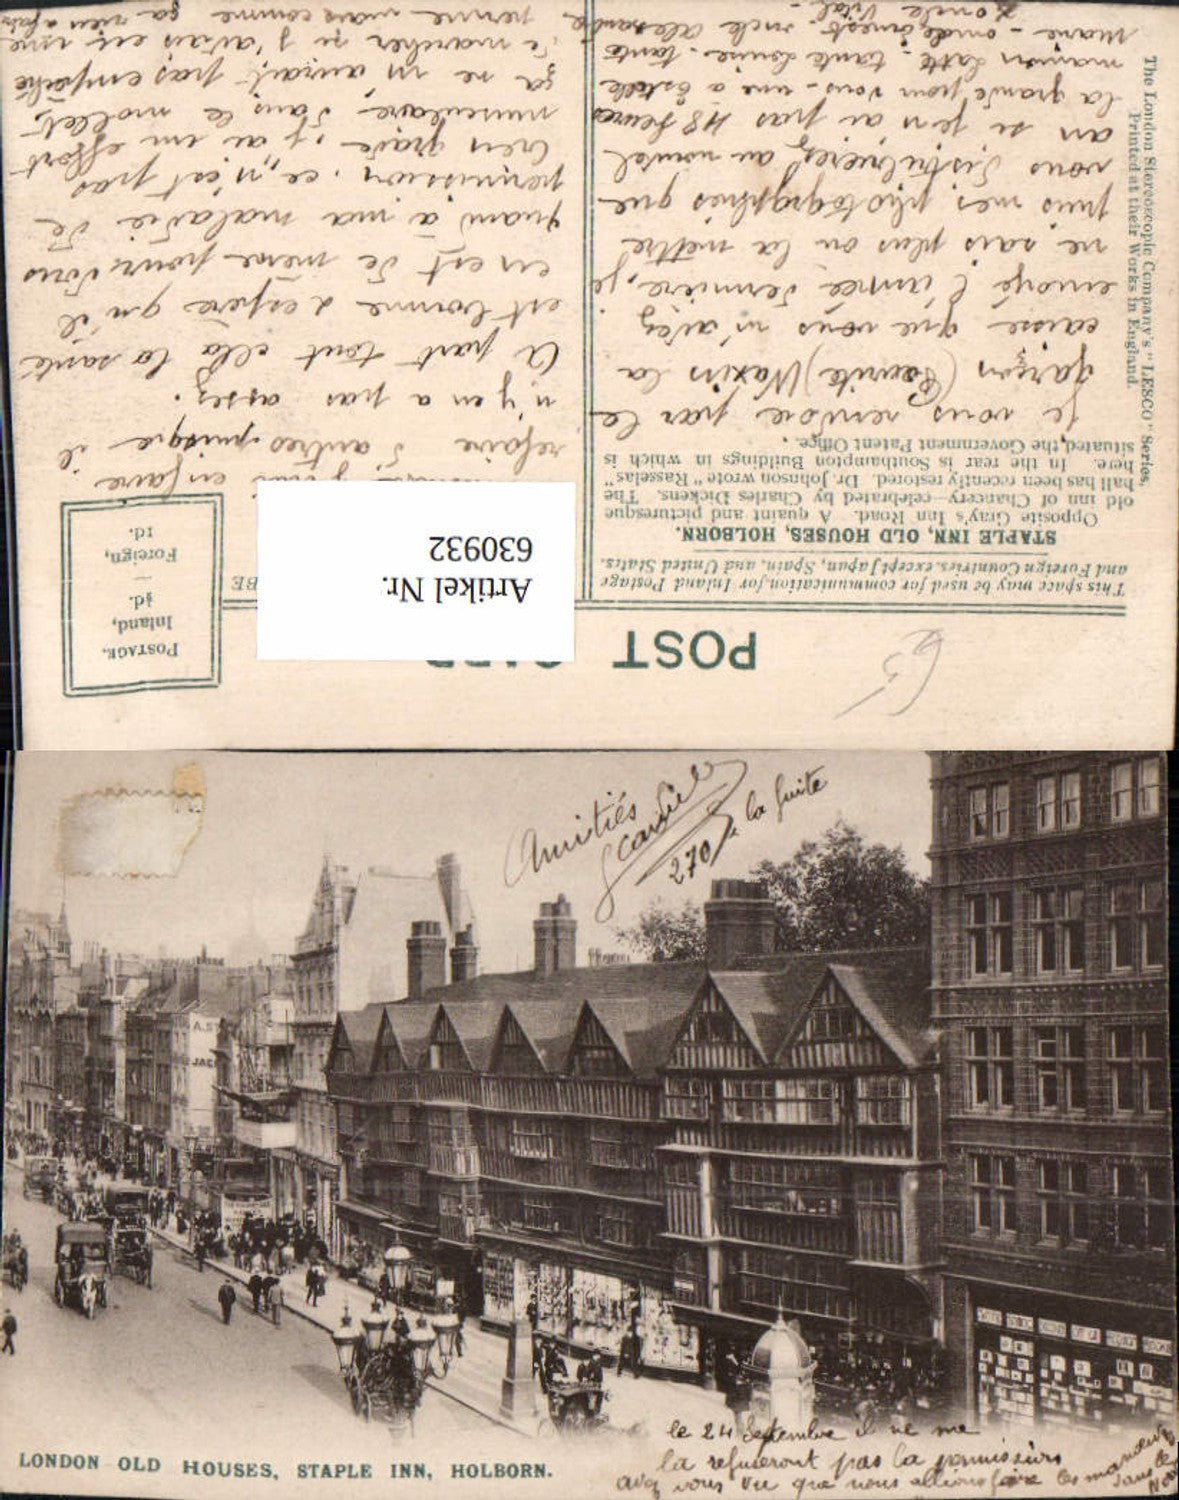 POST CARD
POSTAGE.
Inland,
½d.
Foreign,
1d.
Artikel Nr.
630932
This space may be used for communication for Inland Postage
and Foreign Countries, except Japan, Spain, and United States.
STAPLE INN, OLD HOUSES, HOLBORN.
Opposite Gray's Inn Road. A quaint and picturesque
old inn of Chancery—celebrated by Charles Dickens. The
hall has been recently restored. Dr. Johnson wrote "Rasselas"
here. In the rear is Southampton Buildings in which is
situated, the Government Patent Office.
Je vous renvoie par le
garçon (Beurite) Waxin la
caisse que vous m'avez
envoyé l'année dernière, je
ne sais plus ou la mettre
puis mes photographies que
vous distribuerez au nouvel
an si je n'ai pas 48 heures
la grande pour vous - une a Estelle
mamon Lotte - tante Louise - tante
Marie - oncle Ernest - oncle Alexandre
L'oncle Vital -
il faut en faire
refaire d'autres puisque il
n'y en a pas assez.
A part tout cella la santé
est bonne j'espère qu'il
en est de même pour vous
quant à ma maladie de
permission, ce n'est pas
bien grave, j'ai un effort
musculaire dans le mollet
ça ne m'aurait pas empêché
de marcher si j'avais eu une
permme mais comme ça rien a faire
The London Stereoscopic Company's "LESCO" Series.
Printed at their Works in England.
Amitiés
270
la suite
A.S
JAC
le 24 Septembre il ne me
la refuseront pas la permission
avez vous vu que nous allions faire les manœuvres
dans le Nord
LONDON OLD HOUSES, STAPLE INN, HOLBORN.